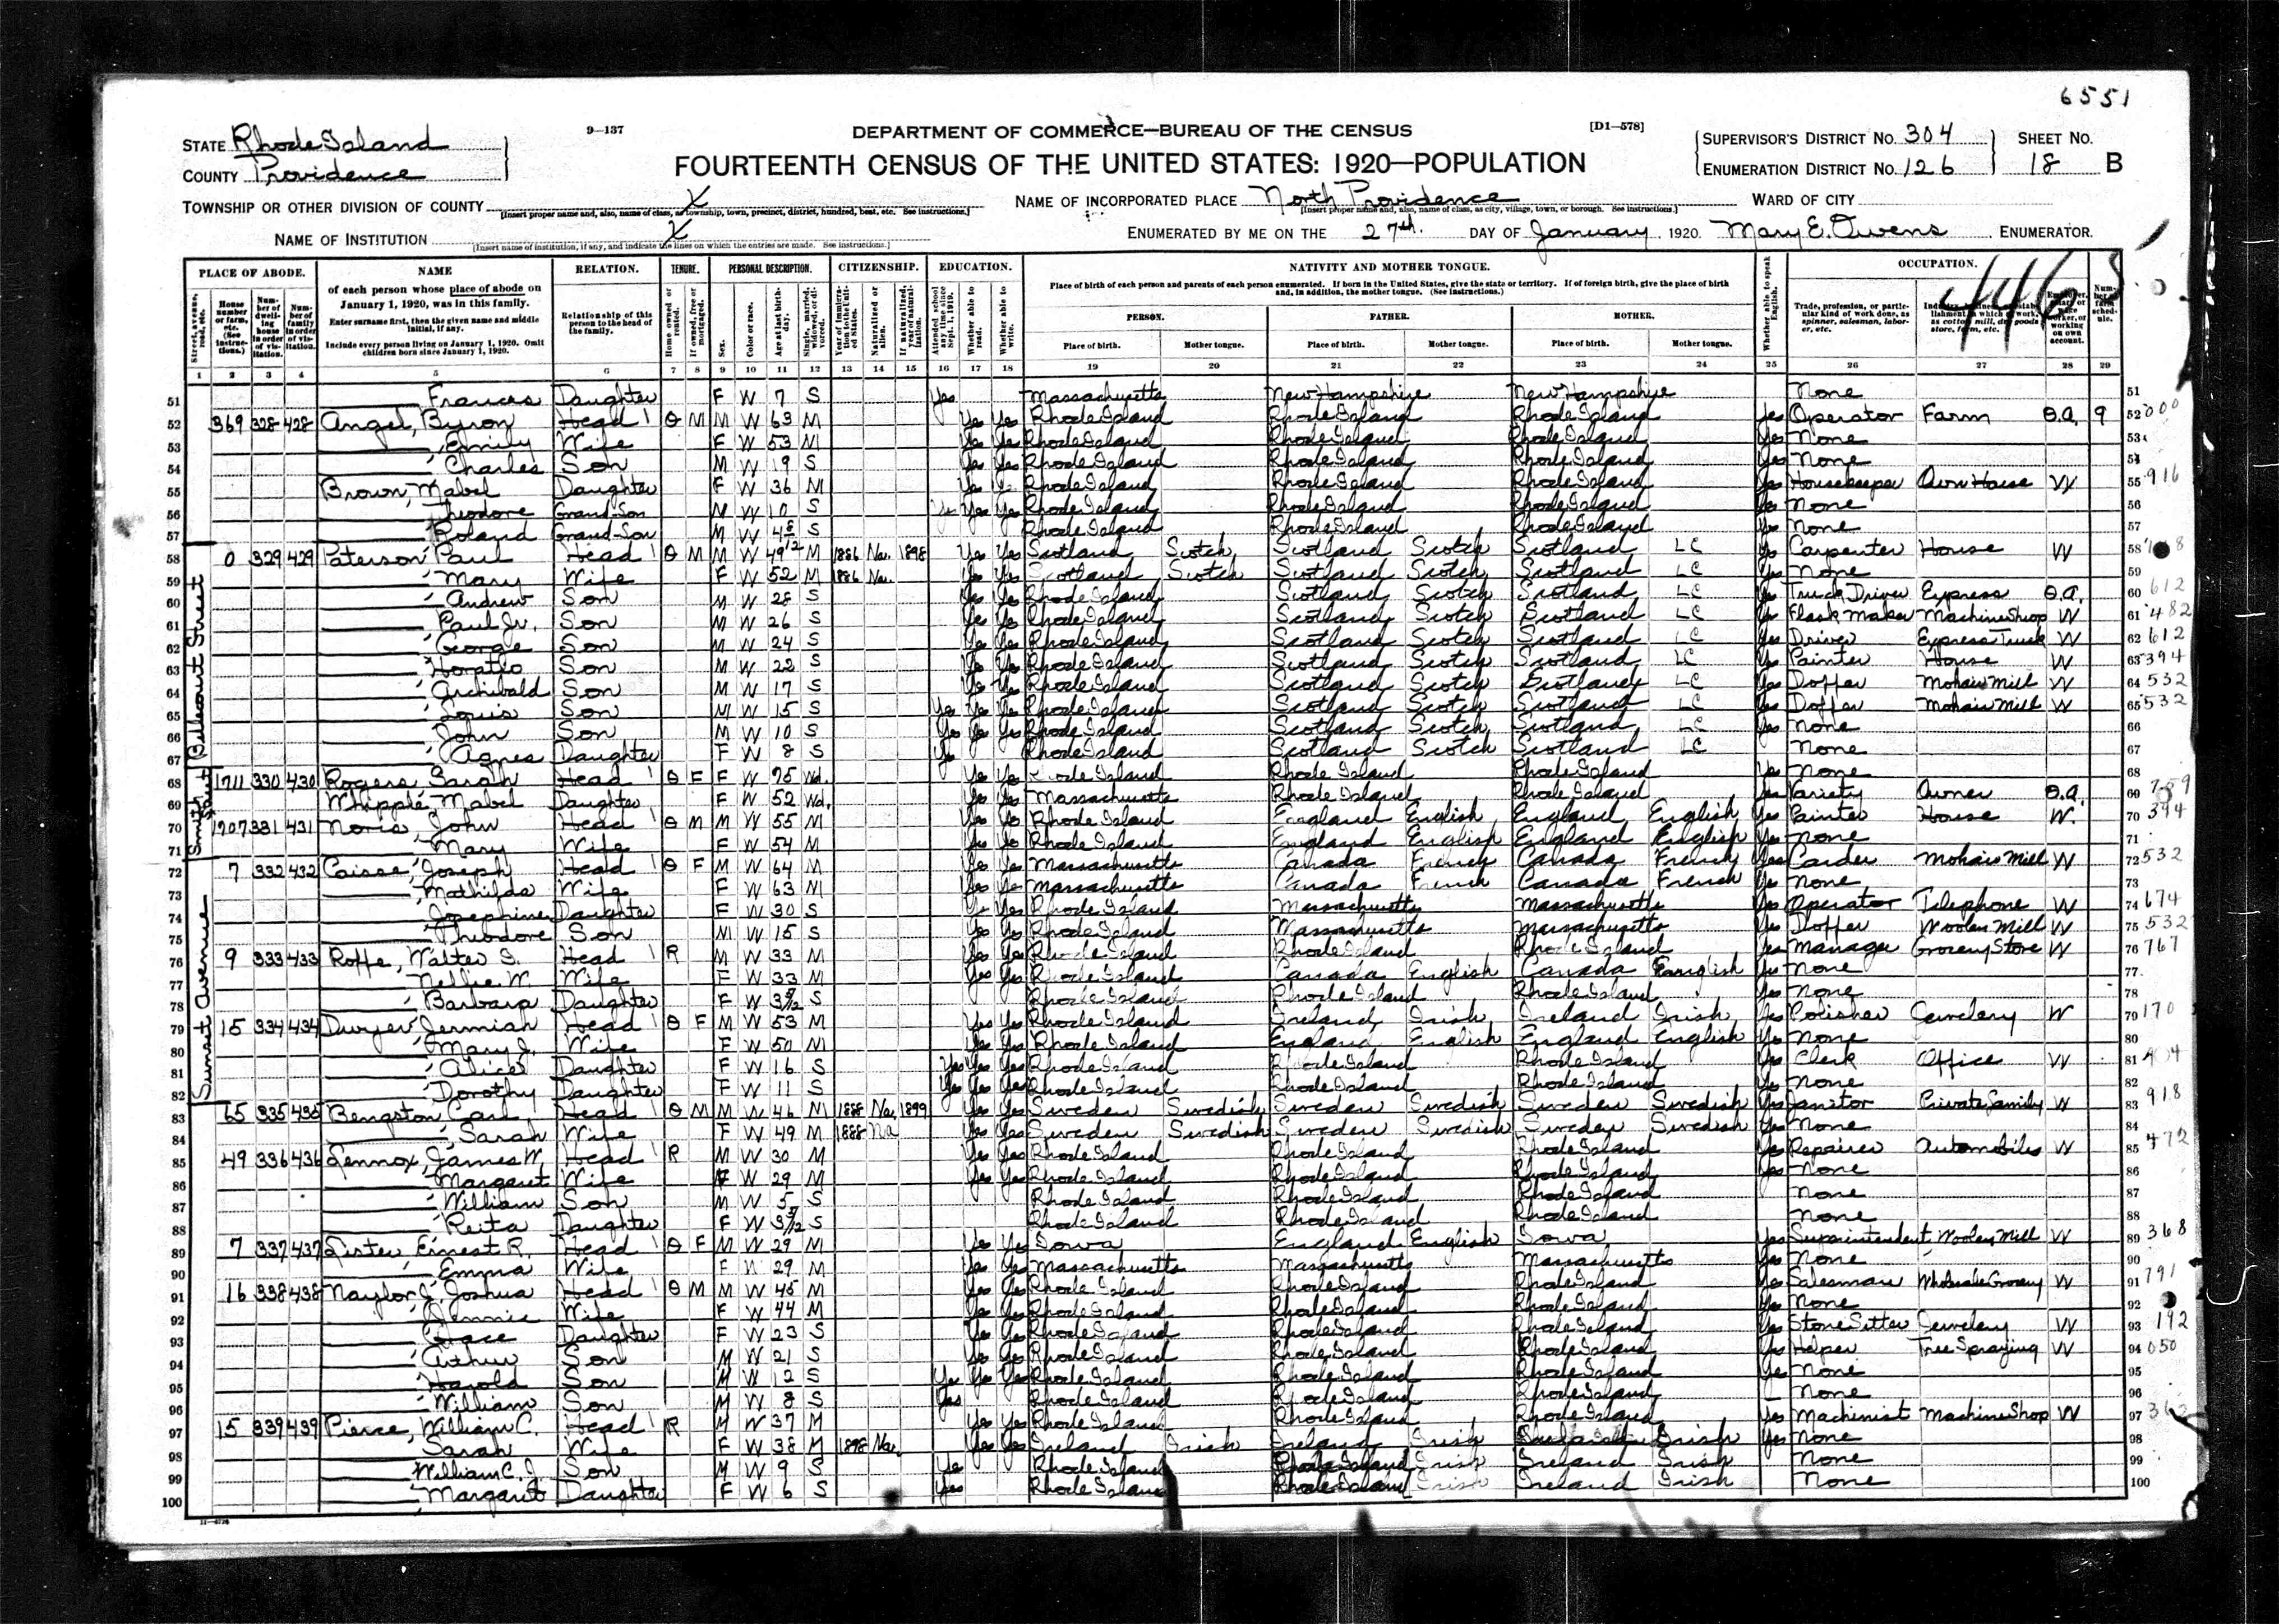 6551
STATE Rhode Island
COUNTY Providence
9—137
DEPARTMENT OF COMMERCE—BUREAU OF THE CENSUS
[D1—578]
FOURTEENTH CENSUS OF THE UNITED STATES: 1920—POPULATION
SUPERVISOR'S DISTRICT No. 304
ENUMERATION DISTRICT No. 126
SHEET No. 18 B
TOWNSHIP OR OTHER DIVISION OF COUNTY X
[Insert proper name and, also, name of class, as township, town, precinct, district, hundred, beat, etc. See instructions.]
NAME OF INCORPORATED PLACE North Providence
[Insert proper name and, also, name of class, as city, village, town, or borough. See instructions.]
WARD OF CITY
NAME OF INSTITUTION X
[Insert name of institution, if any, and indicate the lines on which the entries are made. See instructions.]
ENUMERATED BY ME ON THE 27th. DAY OF January, 1920. Mary E. Owens, ENUMERATOR.
PLACE OF ABODE. NAME RELATION. TENURE. PERSONAL DESCRIPTION. CITIZENSHIP. EDUCATION. NATIVITY AND MOTHER TONGUE. OCCUPATION.
of each person whose place of abode on January 1, 1920, was in this family.
Enter surname first, then the given name and middle initial, if any.
Include every person living on January 1, 1920. Omit children born since January 1, 1920.
Relationship of this person to the head of the family.
Place of birth of each person and parents of each person enumerated. If born in the United States, give the state or territory. If of foreign birth, give the place of birth and, in addition, the mother tongue. (See instructions.)
PERSON. FATHER. MOTHER.
Place of birth. Mother tongue. Place of birth. Mother tongue. Place of birth. Mother tongue.
1 2 3 4 5 6 7 8 9 10 11 12 13 14 15 16 17 18 19 20 21 22 23 24 25 26 27 28 29
51 Frances Daughter F W 7 S Yes Massachusetts New Hampshire New Hampshire None 51
52 369 328 428 Angel, Byron Head 1 O M M W 63 M Yes Yes Rhode Island Rhode Island Rhode Island Yes Operator Farm O.A. 9 52 000
53 Emily Wife F W 53 M Yes Yes Rhode Island Rhode Island Rhode Island Yes None 53
54 Charles Son M W 19 S Yes Yes Rhode Island Rhode Island Rhode Island Yes None 54
55 Brown, Mabel Daughter F W 36 M Yes Yes Rhode Island Rhode Island Rhode Island Yes Housekeeper Own House W 55 916
56 Theodore Grand-Son M W 10 S Yes Yes Yes Rhode Island Rhode Island Rhode Island Yes None 56
57 Roland Grand-Son M W S Rhode Island Rhode Island Rhode Island Yes None 57
Belcourt Street
58 0 329 429 Paterson, Paul Head 1 O M M W 49 M 1886 Na. 1898 Yes Yes Scotland Scotch Scotland Scotch Scotland LC Yes Carpenter House W 58
59 Mary Wife F W 52 M 1886 Na. Yes Yes Scotland Scotch Scotland Scotch Scotland LC Yes None 59
60 Andrew Son M W 28 S Yes Yes Rhode Island Scotland Scotch Scotland LC Yes Truck Driver Express O.A. 60 612
61 Paul Jr. Son M W 26 S Yes Yes Rhode Island Scotland Scotch Scotland LC Yes Flask Maker Machine Shop W 61 482
62 George Son M W 24 S Yes Yes Rhode Island Scotland Scotch Scotland LC Yes Driver Express Truck W 62 612
63 Horatio Son M W 22 S Yes Yes Rhode Island Scotland Scotch Scotland LC Yes Painter House W 63 394
64 Archibald Son M W 17 S Yes Yes Rhode Island Scotland Scotch Scotland LC Yes Doffer Mohair Mill W 64 532
65 Louis Son M W 15 S Yes Yes Yes Rhode Island Scotland Scotch Scotland LC Yes Doffer Mohair Mill W 65 532
66 John Son M W 10 S Yes Yes Yes Rhode Island Scotland Scotch Scotland LC Yes None 66
67 Agnes Daughter F W 8 S Yes Rhode Island Scotland Scotch Scotland LC None 67
Smith Street
68 1711 330 430 Rogers, Sarah Head 1 O F F W 75 Wd. Yes Yes Rhode Island Rhode Island Rhode Island Yes None 68
69 Whipple, Mabel Daughter F W 52 Wd. Yes Yes Massachusetts Rhode Island Rhode Island Yes Variety Owner O.A. 69
70 1707 331 431 Noris, John Head 1 O M M W 55 M Yes Yes Rhode Island England English England English Yes Painter House W. 70 394
71 Mary Wife F W 54 M Yes Yes Rhode Island England English England English Yes None 71
Sunset Avenue
72 7 332 432 Caisse, Joseph Head 1 O F M W 64 M Yes Yes Massachusetts Canada French Canada French Yes Carder Mohair Mill W 72 532
73 Mathilda Wife F W 63 M Yes Yes Massachusetts Canada French Canada French Yes None 73
74 Josephine Daughter F W 30 S Yes Yes Rhode Island Massachusetts Massachusetts Yes Operator Telephone W 74 674
75 Theodore Son M W 15 S Yes Yes Rhode Island Massachusetts Massachusetts Yes Doffer Woolen Mill W 75 532
76 9 333 433 Roffe, Walter Head 1 R M W 33 M Yes Yes Rhode Island Rhode Island Rhode Island Yes Manager Grocery Store W 76 767
77 Nellie W. Wife F W 33 M Yes Yes Rhode Island Canada English Canada English Yes None 77
78 Barbara Daughter F W S Rhode Island Rhode Island Rhode Island Yes None 78
79 15 334 434 Dwyer, Jermiah Head 1 O F M W 53 M Yes Yes Rhode Island Ireland Irish Ireland Irish Yes Polisher Jewelery W 79 170
80 Mary J. Wife F W 50 M Yes Yes Rhode Island England English England English Yes None 80
81 Alice Daughter F W 16 S Yes Yes Yes Rhode Island Rhode Island Rhode Island Yes Clerk Office W 81
82 Dorothy Daughter F W 11 S Yes Yes Yes Rhode Island Rhode Island Rhode Island Yes None 82
83 65 335 435 Bengston, Carl Head 1 O M M W 46 M 1888 Na. 1899 Yes Yes Sweden Swedish Sweden Swedish Sweden Swedish Yes Janitor Private Family W 83 918
84 Sarah Wife F W 49 M 1888 Na Yes Yes Sweden Swedish Sweden Swedish Sweden Swedish Yes None 84
85 49 336 436 Lennox, James W. Head 1 R M W 30 M Yes Yes Rhode Island Rhode Island Rhode Island Yes Repairer Automobiles W 85 472
86 Margaret Wife F W 29 M Yes Yes Rhode Island Rhode Island Rhode Island Yes None 86
87 William Son M W 5 S Rhode Island Rhode Island Rhode Island None 87
88 Reita Daughter F W S Rhode Island Rhode Island Rhode Island None 88
89 7 337 437 Lister, Ernest R. Head 1 O F M W 29 M Yes Yes Iowa England English Iowa Yes Superintendent Woolen Mill W 89 368
90 Emma Wife F W 29 M Yes Yes Massachusetts Massachusetts Massachusetts Yes None 90
91 16 338 438 Naylor, J. Joshua Head 1 O M M W 45 M Yes Yes Rhode Island Rhode Island Rhode Island Yes Salesman Wholesale Grocery W 91 791
92 Jennie Wife F W 44 M Yes Yes Rhode Island Rhode Island Rhode Island Yes None 92
93 Grace Daughter F W 23 S Yes Yes Rhode Island Rhode Island Rhode Island Yes Stone Setter Jewelery W 93 192
94 Arthur Son M W 21 S Yes Yes Rhode Island Rhode Island Rhode Island Yes Helper Tree Spraying W 94 050
95 Harold Son M W 12 S Yes Yes Yes Rhode Island Rhode Island Rhode Island Yes None 95
96 William Son M W 8 S Yes Rhode Island Rhode Island Rhode Island None 96
97 15 339 439 Pierce, William C. Head 1 R M W 37 M Yes Yes Rhode Island Rhode Island Rhode Island Yes Machinist Machine Shop W 97
98 Sarah Wife F W 38 M 1898 Na. Yes Yes Ireland Irish Ireland Irish Irish Yes None 98
99 William C. J. Son M W 9 S Yes Rhode Island Rhode Island Irish Ireland Irish None 99
100 Margaret Daughter F W 6 S Yes Rhode Island Rhode Island Irish Ireland Irish None 100